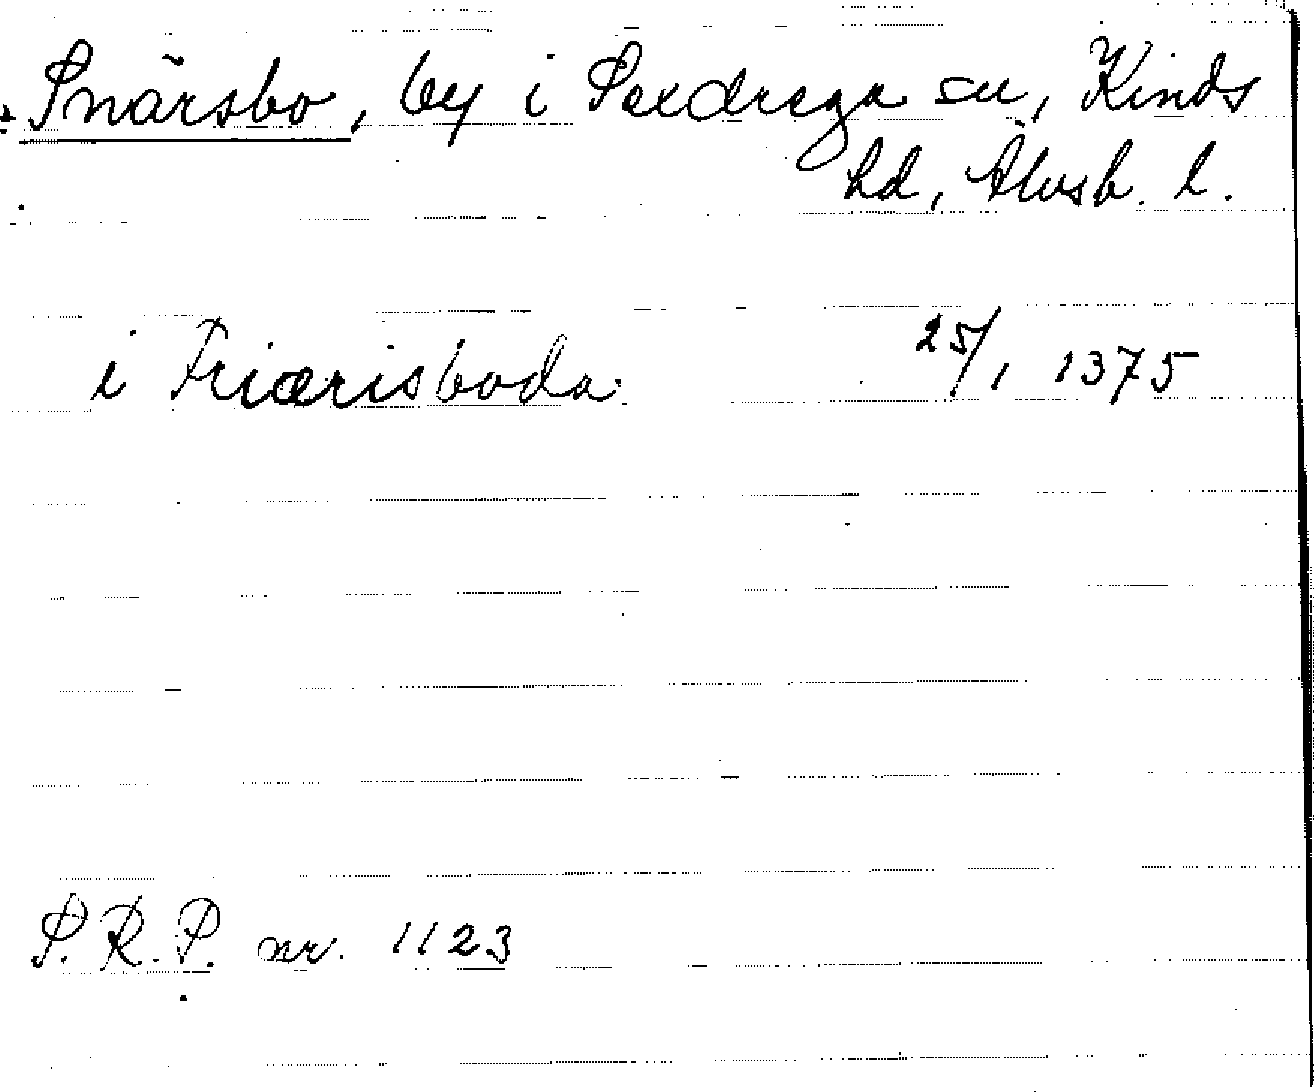 Snärsbo, by i Sexdrega sn, Kinds
hd, Älvsb. l.
i Friærisboda 25/1 1375
S.R.P. nr. 1123